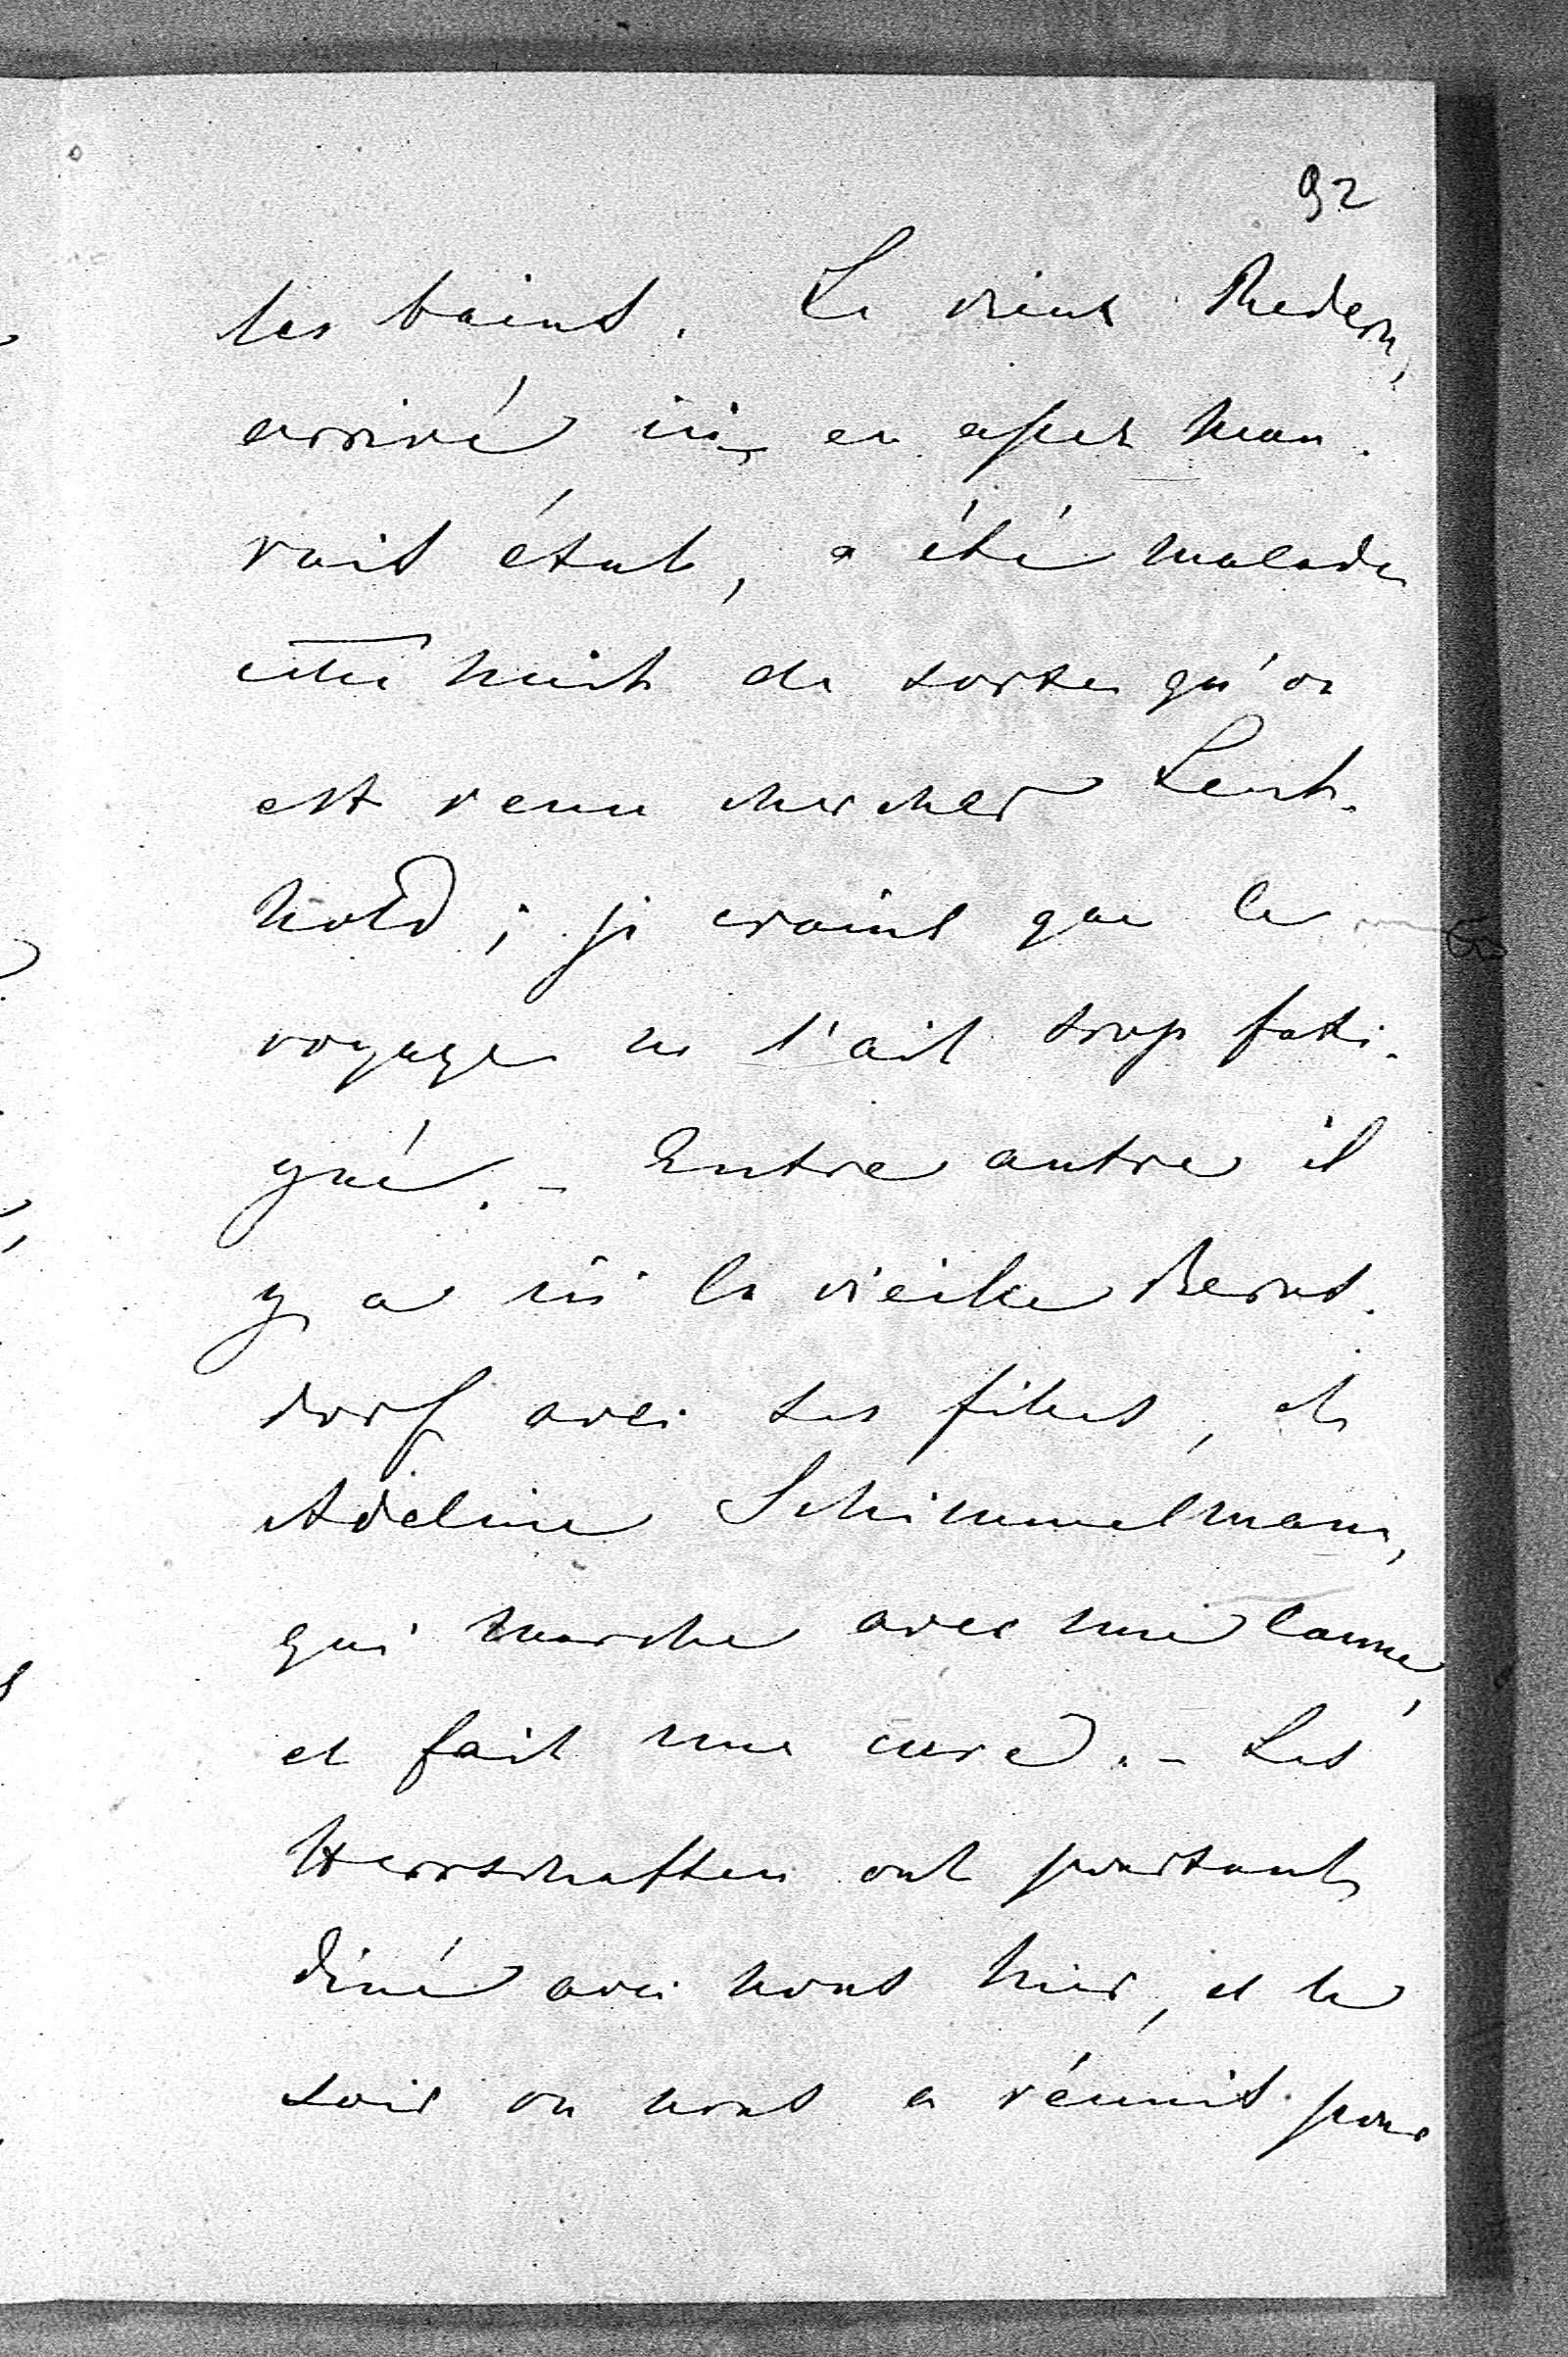 92
les bains. Le vieux Redern,
arrivé ici en assez mau-
vais état, a été malade
cette nuit de sorte qu'on
est venu chercher Leut-
hold; je crains que le
voyage ne l'ait trop fati-
gué. – Entre autre il
y a ici la vieille Bernst-
dorf avec ses filles, et
Adeline Schimmelmann,
qui marche avec une canne,
et fait une cure. – Les
Herrschaften ont pourtant
diné avec nous hier, et le
soir on nous a réunit pour